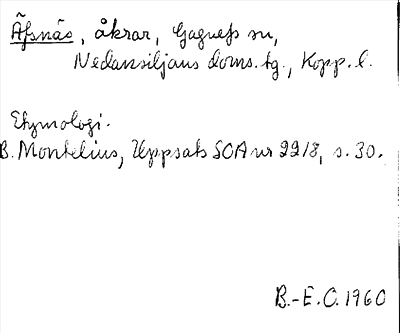 Äfsnäs, åkrar, Gagnefs sn,
Nedansiljans doms. tg., Kopp. l.
Etymologi.
B. Montelius, Uppsats SOA nr 2218, s. 30.
B.-E. O. 1960